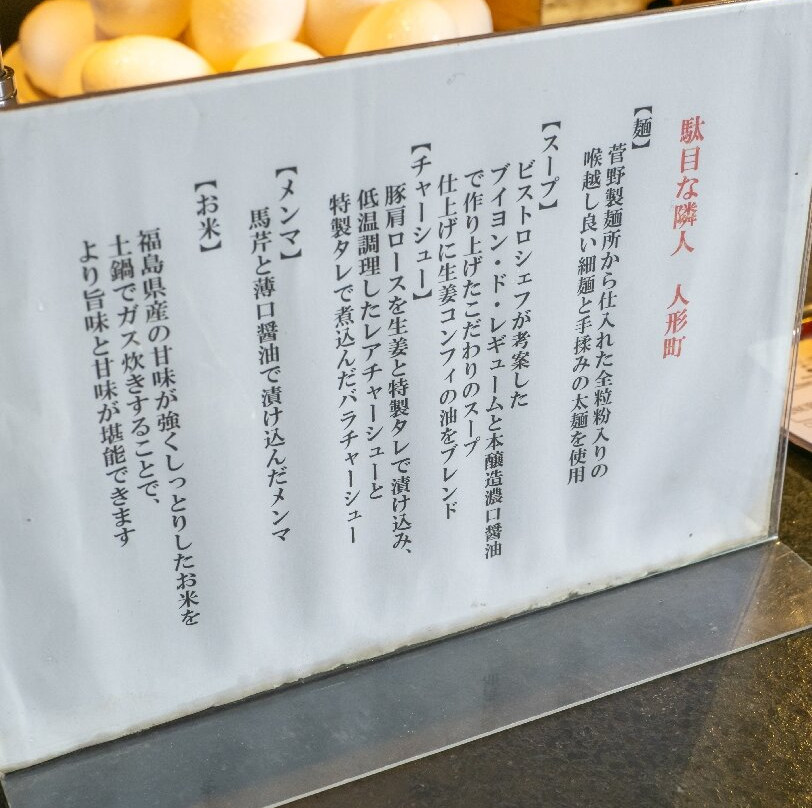 駄目な隣人　人形町
【麺】
菅野製麺所から仕入れた全粒粉入りの
喉越し良い細麺と手揉みの太麺を使用
【スープ】
ビストロシェフが考案した
ブイヨン・ド・レギュームと本醸造濃口醤油
で作り上げたこだわりのスープ
仕上げに生姜コンフィの油をブレンド
【チャーシュー】
豚肩ロースを生姜と特製タレで漬け込み、
低温調理したレアチャーシューと
特製タレで煮込んだバラチャーシュー
【メンマ】
馬芹と薄口醤油で漬け込んだメンマ
【お米】
福島県産の甘味が強くしっとりしたお米を
土鍋でガス炊きすることで、
より旨味と甘味が堪能できます